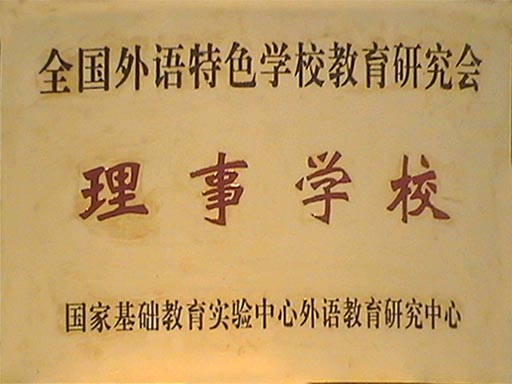 全国外语特色学校教育研究会
理事学校
国家基础教育实验中心外语教育研究中心